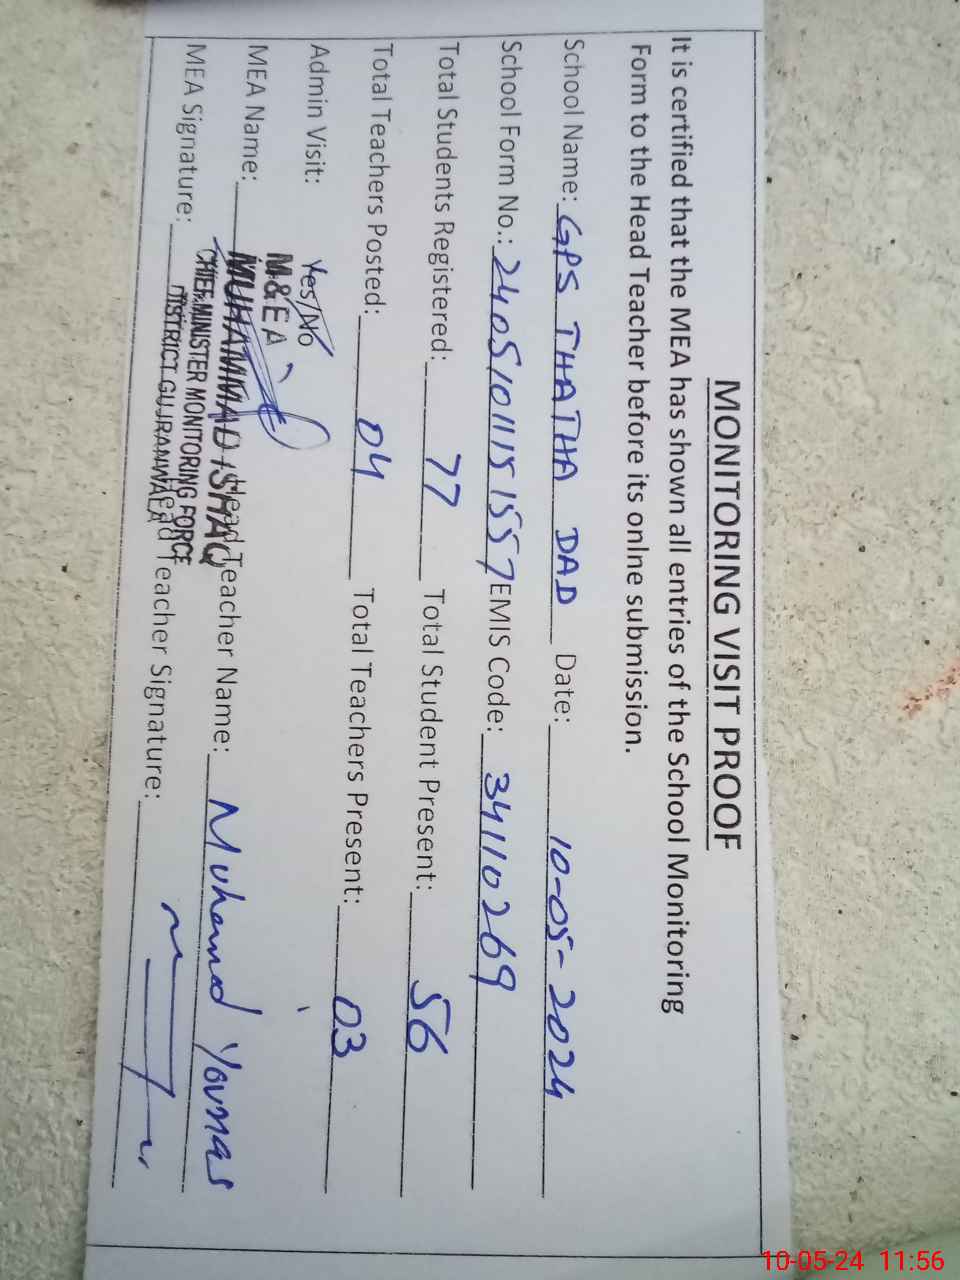 MONITORING VISIT PROOF
It is certified that the MEA has shown all entries of the School Monitoring
Form to the Head Teacher before its onlne submission.
School Name: GPS THATHA DAD Date: 10-05-2024
School Form No.: 24051011151557 EMIS Code: 34110269
Total Students Registered: 77 Total Student Present: 56
Total Teachers Posted: 04 Total Teachers Present: 03
Admin Visit: Yes/No
M&EA
MEA Name: MUHAMMAD ISHAQ Head Teacher Name: Muhammad Younas
CHIEF MINISTER MONITORING FORCE
MEA Signature: DISTRICT GUJRANWALA Head Teacher Signature:
10-05-24 11:56